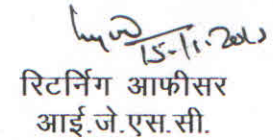 15.11.2010
रिटर्निंग आफीसर
आई.जे.एस.सी.